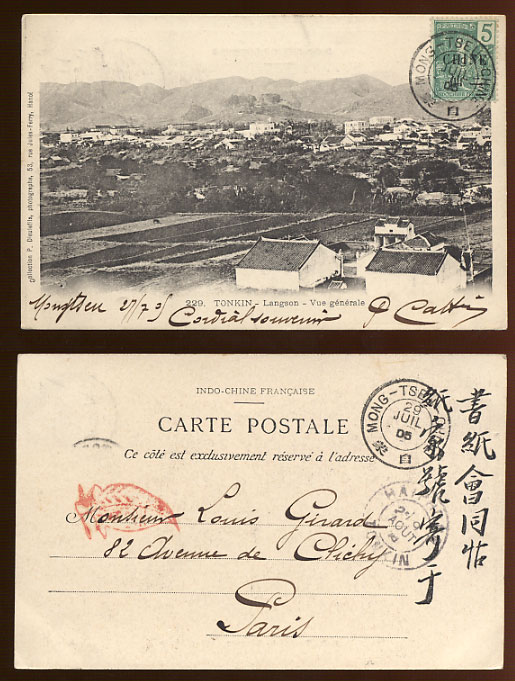 5
CHINE
MONG-TSEU CHINE
05
蒙
自
Collection P. Dieulefils, photographe, 53, rue Jules-Ferry, Hanoï
229. TONKIN - Langson - Vue générale
Mongtseu 27/7 05
Cordial souvenir
INDO-CHINE FRANÇAISE
CARTE POSTALE
Ce côté est exclusivement réservé à l'adresse
MONG-TSEU
29
JUIL
05
蒙
自
Monsieur Louis Girard
82 Avenue de Clichy
Paris
AOUT
書紙會同帖